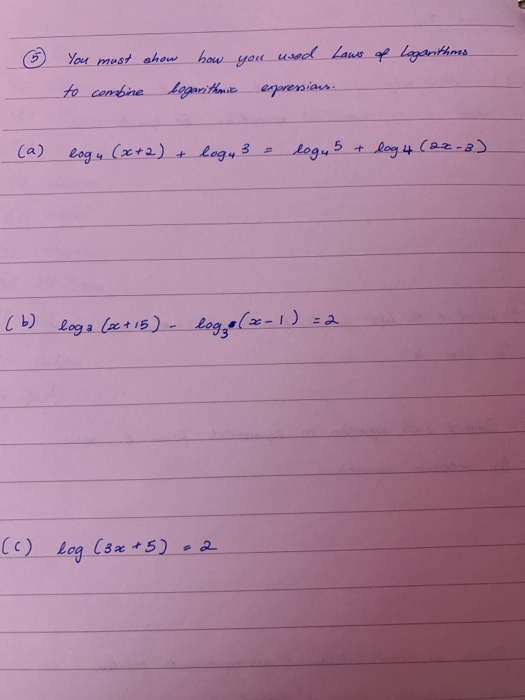 ⑤ You must show how you used Laws of Logarithms
to combine logarithmic expressions.
(a) log₄ (x+2) + log₄ 3 = log₄ 5 + log 4 (2x-3)
(b) log₃ (x+15) - log₃ (x-1) = 2
(c) log (3x+5) = 2